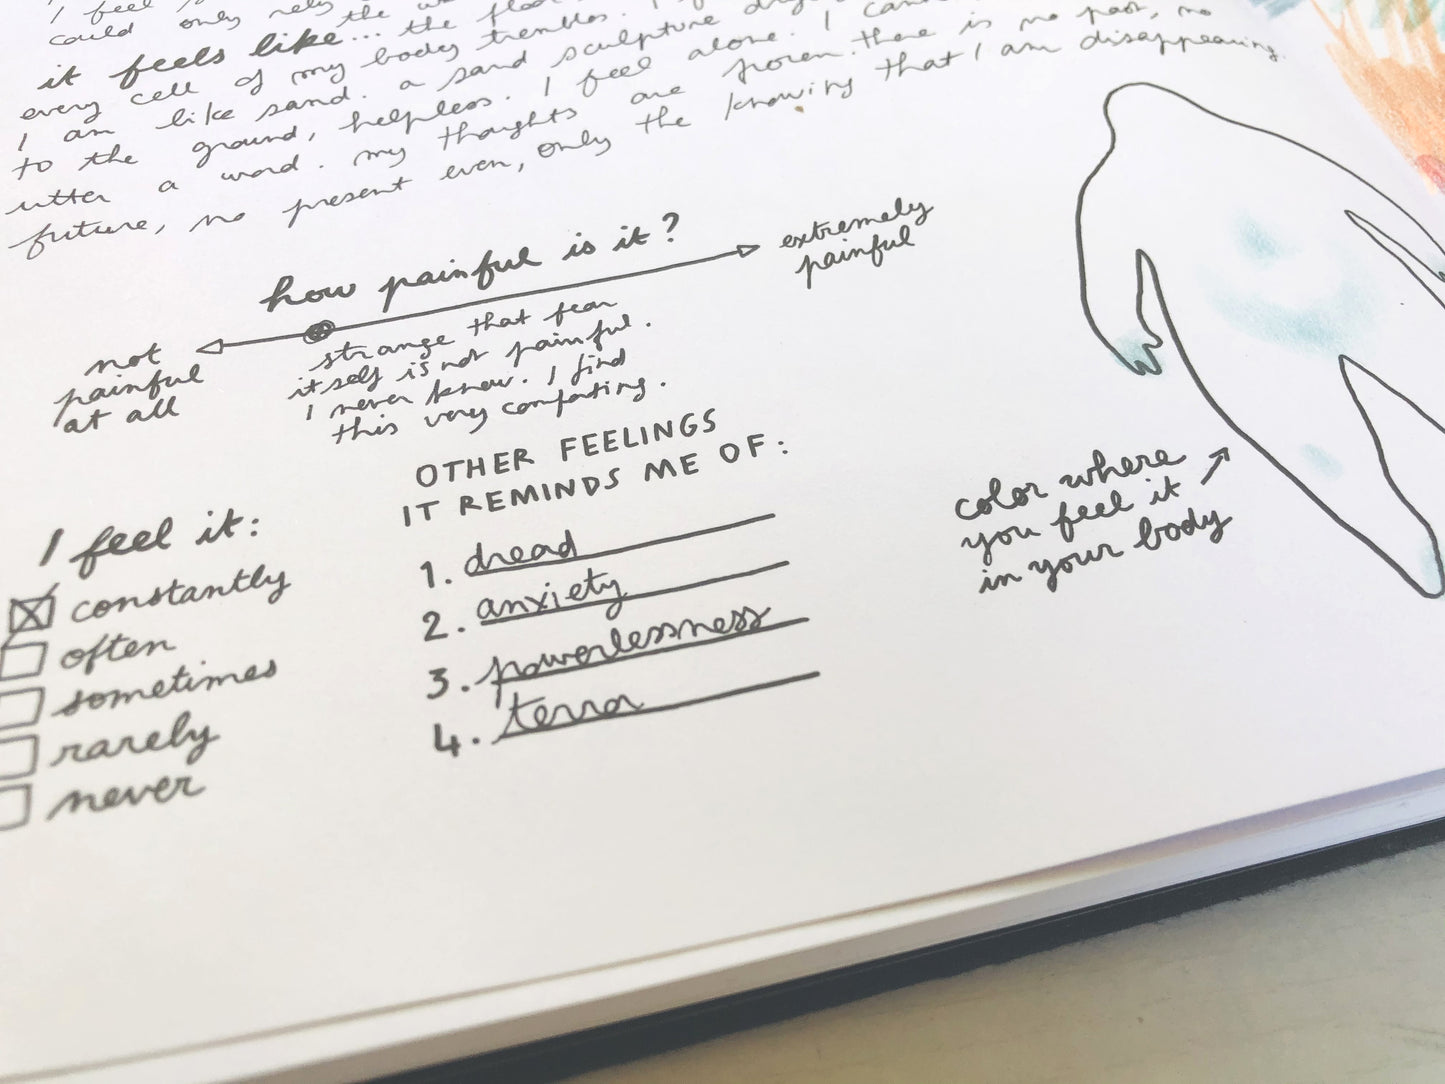 I feel
could only rely the
it feels like... the floor
every cell of my body trembles. I
I am like sand. a sand sculpture
to the ground, helpless. I feel alone. I
utter a word. my thoughts are frozen. there is no past, no
future, no present even, only the knowing that I am disappearing.
how painful is it?
extremely
painful
not
painful
at all
strange that fear
itself is not painful.
I never knew. I find
this very comforting.
OTHER FEELINGS
IT REMINDS ME OF:
1. dread
2. anxiety
3. powerlessness
4. terror
I feel it:
constantly
often
sometimes
rarely
never
color where
you feel it
in your body